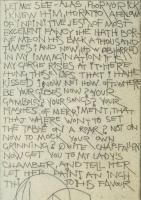 LET ME SEE - ALAS POOR YORICK
I KNEW HIM, HORATIO A FELLOW
OF INFINITE JEST, OF MOST
EXCELLENT FANCY. HE HATH BOR
ME UPON HIS BACK A THOUSAND
TIMES AND NOW HOW ABHORRED
IN MY IMMAGINATION IT IS
MY GORGE RISES AT IT HERE
HUNG THOSE LIPS THAT I HAVE
KISSED I KNOW NOT HOW OFT WHERE
BE YOUR GIBES NOW? YOUR
GAMBOLS? YOUR SONGS? YOUR
FLASHES OF MERRIMENT, THAT
THAT WERE WONT TO SET
THE TABLE ON A ROAR? NOT ON
NOW TO MOCK YOUR OWN
GRINNING? QUITE CHAP-FALLEN
NOW GET YOU TO MY LADY'S
CHAMBER, AND TELL HER
LET HER PAINT AN INCH
THICK TO THIS FAVOUR